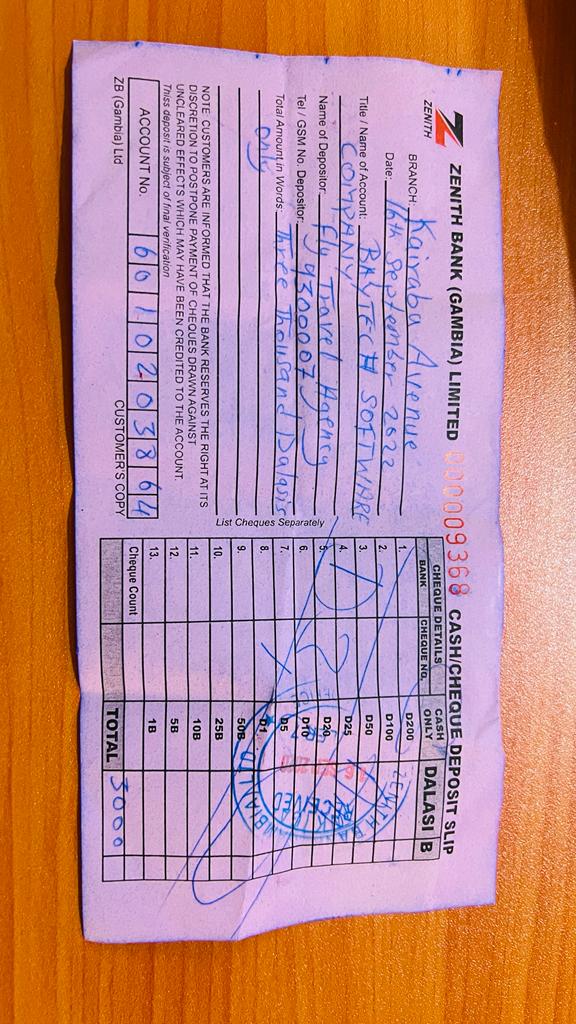 ZENITH
ZENITH BANK (GAMBIA) LIMITED 000009368 CASH/CHEQUE DEPOSIT SLIP
BRANCH: Kairaba Avenue
Date: 16th September 2022
Title / Name of Account: BAYTECH SOFTWARE
COMPANY
Name of Depositor: Fly Travel Agency
Tel / GSM No. Depositor: 9300007
Total Amount in Words: Three Thousand Dalasis
only
NOTE: CUSTOMERS ARE INFORMED THAT THE BANK RESERVES THE RIGHT AT ITS
DISCRETION TO POSTPONE PAYMENT OF CHEQUES DRAWN AGAINST
UNCLEARED EFFECTS WHICH MAY HAVE BEEN CREDITED TO THE ACCOUNT.
This deposit is subject of final verification
ACCOUNT No. 6010203864
ZB (Gambia) Ltd CUSTOMER'S COPY
List Cheques Separately
CHEQUE DETAILS CASH ONLY DALASI B
BANK CHEQUE NO.
1. D200
2. D100
3. D50
4. D25
5. D20
6. D10
7. D5
8. D1
9. 50B
10. 25B
11. 10B
12. 5B
13. 1B
Cheque Count TOTAL 3000
ZENITH BANK
RECEIVED